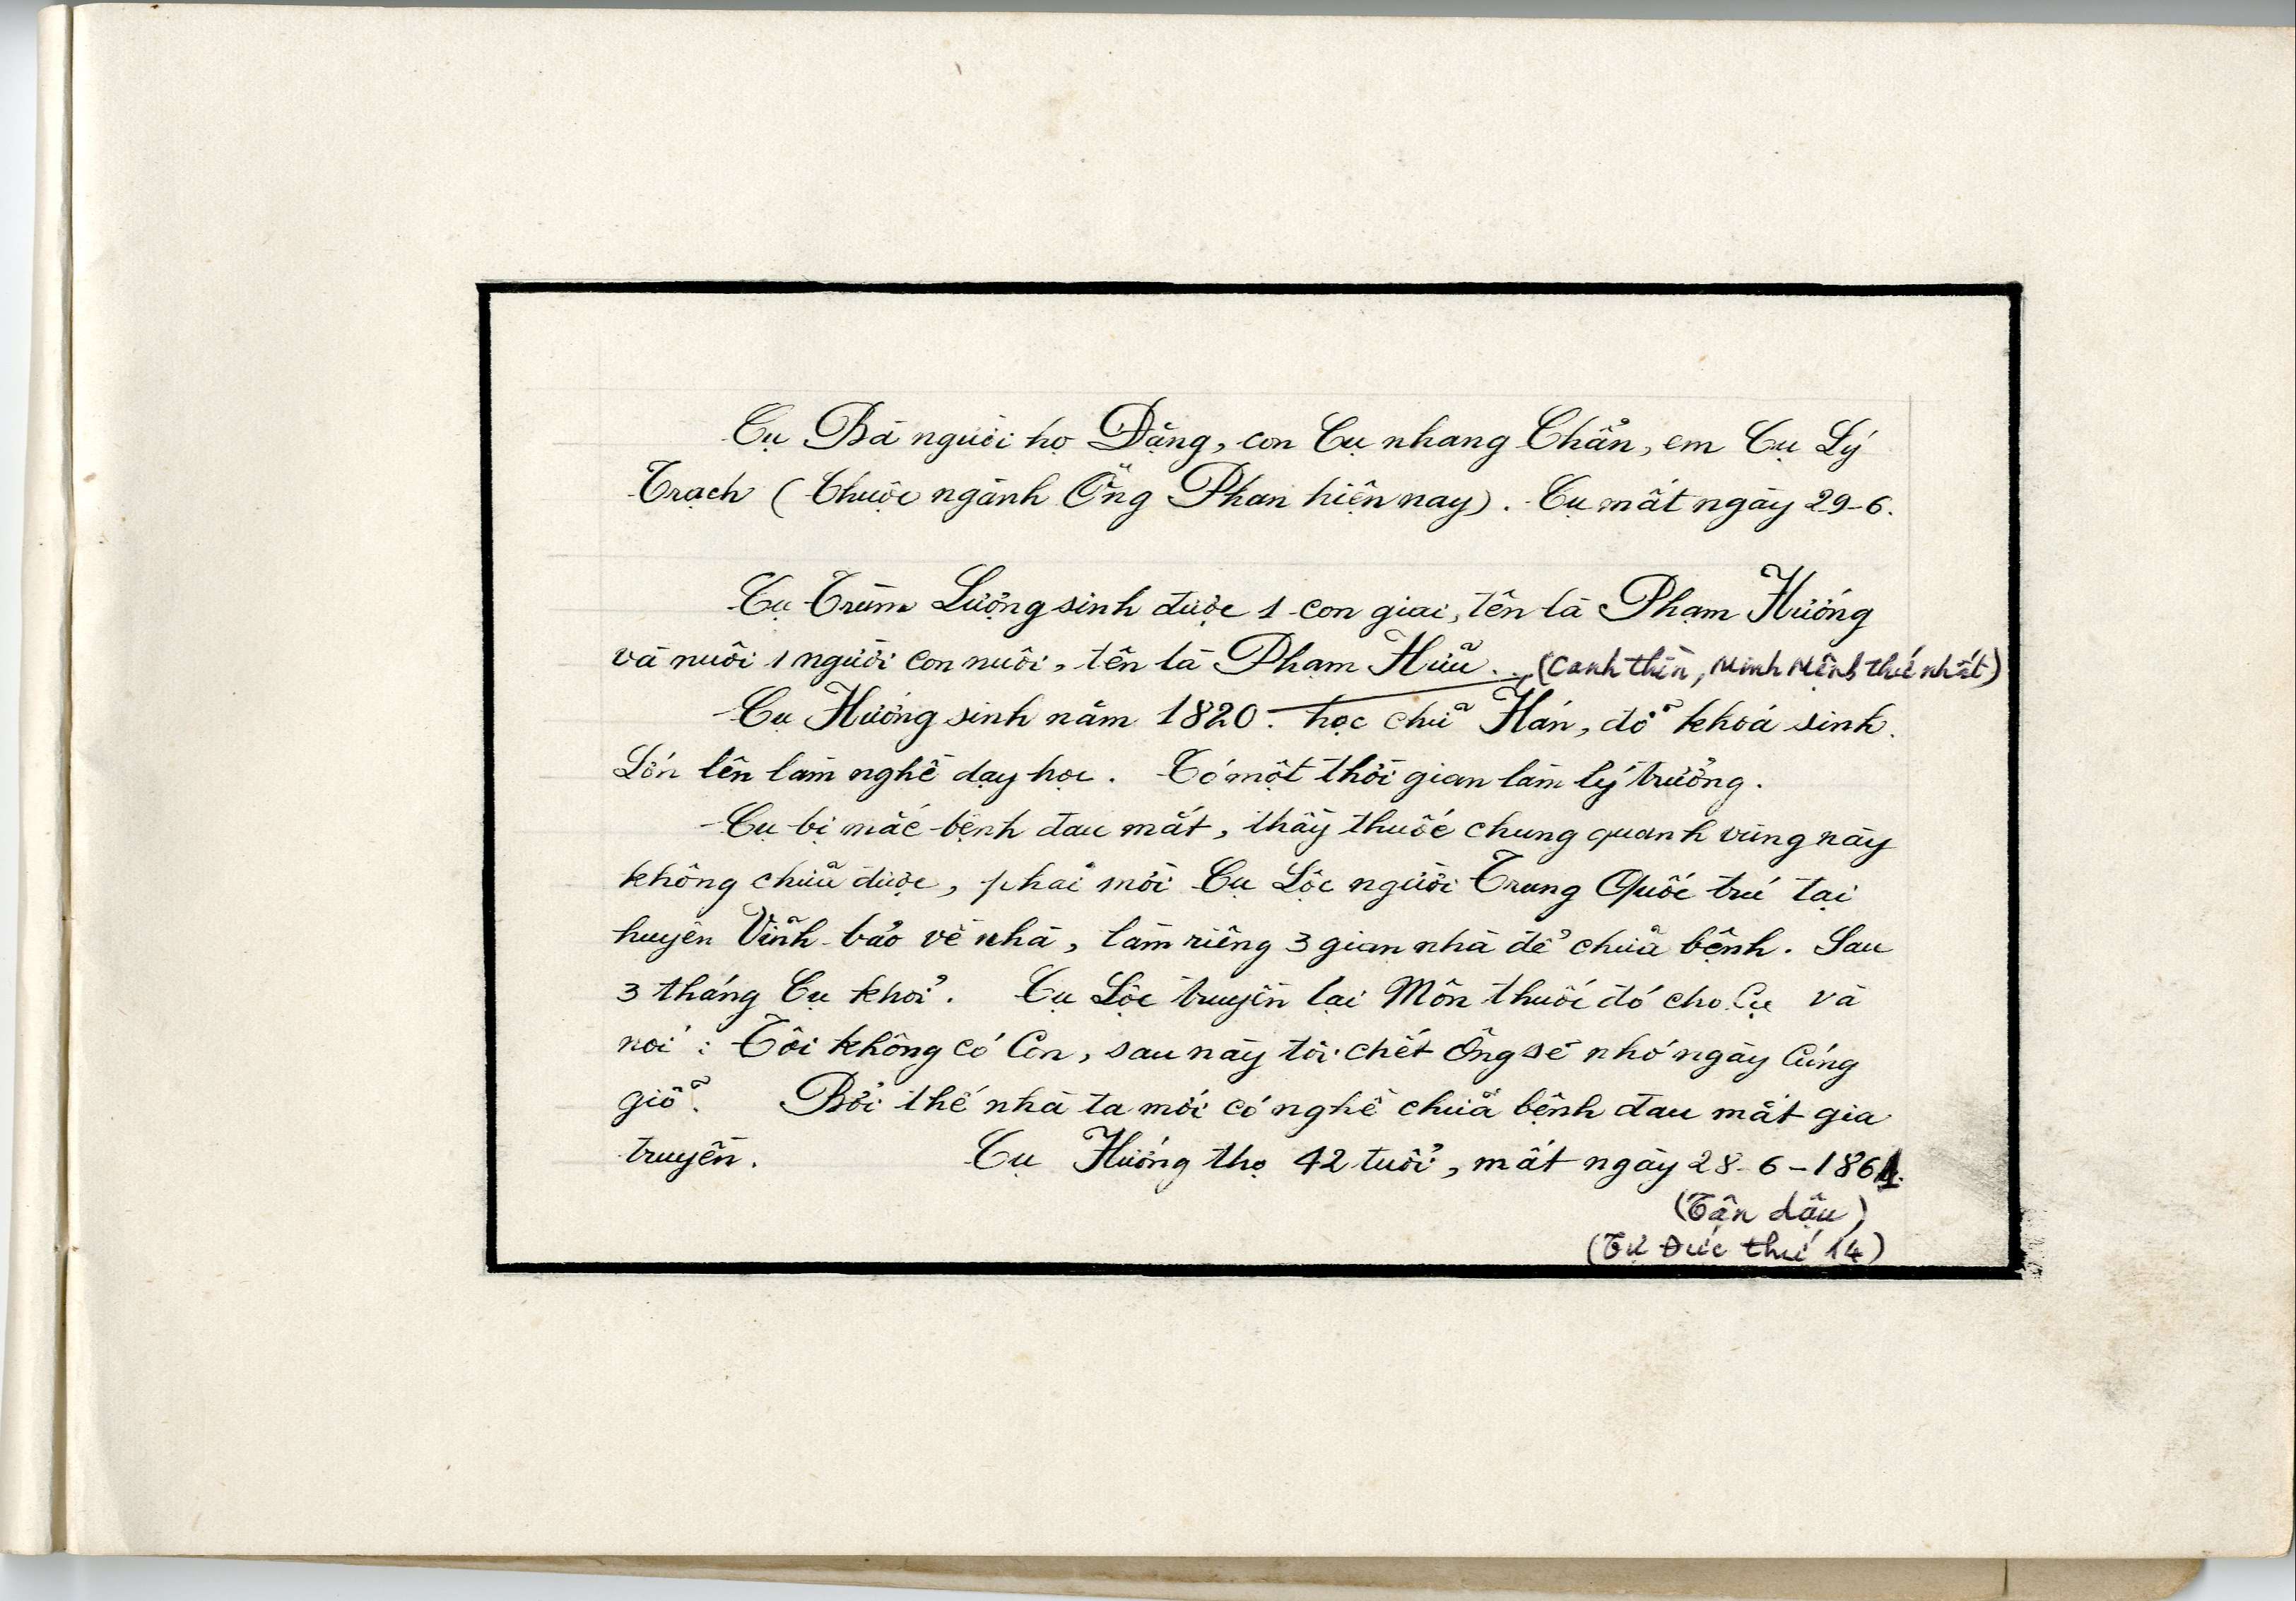 Cụ Bà người họ Đặng, con Cụ nhang Chẩn, em Cụ Lý
Trạch (Thuộc ngành Ông Phan hiện nay). Cụ mất ngày 29-6.
Cụ Trùm Lưởng sinh được 1 con giai, tên là Phạm Hướng
và nuôi 1 người con nuôi, tên là Phạm Hữu. (Canh thìn, Minh Mệnh thứ nhất)
Cụ Hướng sinh năm 1820. học chữ Hán, đỗ khoá sinh.
Lớn lên làm nghề dạy học. Có một thời gian làm lý trưởng.
Cụ bị mắc bệnh đau mắt, thầy thuốc chung quanh vùng này
không chữa được, phải mời Cụ Lộc người Trung Quốc trú tại
huyện Vĩnh-bảo về nhà, làm riêng 3 gian nhà để chữa bệnh. Sau
3 tháng Cụ khỏi. Cụ Lộc truyền lại Môn thuốc đó cho Cụ và
nói: Tôi không có Con, sau này tôi chết Ông sẽ nhớ ngày Cúng
giỗ. Bởi thế nhà ta mới có nghề chữa bệnh đau mắt gia
truyền. Cụ Hướng thọ 42 tuổi, mất ngày 28-6-1861.
(Tân dậu)
(Tự Đức thứ 14)